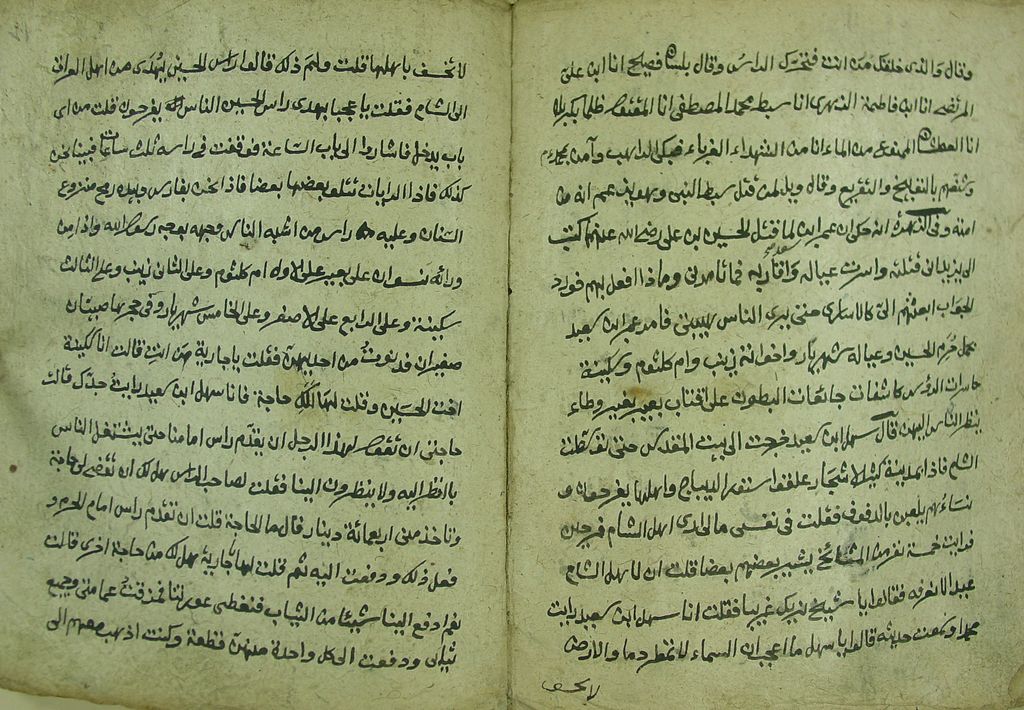 وقال والذي خلقك من انت فتحرك الراس وقال بلسان فصيح انا ابن علي
المرتضى انا ابن فاطمة الزهرى انا سبط محمد المصطفى انا المقتول ظلما بكربلا
انا العطشان الممنوع من الماء انا من الشهداء الغرباء فبكى الراهب وآمن بمحمد
وشتمهم بالتوبيخ والتقريع وقال ويل لمن قتل سبط النبي وهو يزعم انه من
امته وفي انه حكي ان عمر ابن لما قتل الحسين بن علي رضى الله عنهم كتب
الى يزيد اني قتلته واسرت عياله واقاربه فما تامرني وماذا افعل بهم فورد
الجواب ابعثهم الي كالاسارى حتى يرى الناس هيبتي فامر عمر ابن سعيد
بحمل حرم الحسين وعياله شهربار واخواته زينب وام كلثوم وسكينة
حاسرات الرؤس كاشفات جائعات البطون على اقتاب بعير بغير وطاء
ينظر الناس اليهن قال سهل ابن سعيد خرجت الى بيت المقدس حتى توسطت
الشام فاذا بمدينة كثير الاشجار علقوا ستور الديباج واهلها يفرحون و
نساءهم يلعبن بالدفوف فقلت في نفسي مالي ارى اهل الشام فرحين
فرايت خمسة نفر من المشائخ يشير بعضهم بعضا قلت ان لاهل الشام
عيد لا نعرفه فقالوا يا شيخ نريك غريبا فقلت انا سهل ابن سعيد رايت
محمدا وسمعت حديثه قالوا يا سهل ما اعجب ان السماء لا تمطر دما والارض
لا تخسف
لا تخسف باهلها قلت ولم ذلك قالوا راس الحسين يهدى من اهل العراق
الى الشام فقلت يا عجبا يهدى راس الحسين الناس يفرحون قلت من اى
باب يدخل فاشاروا الى باب الساعة فوقفت في راسه ثلث ساعات فبينا نحن
كذلك فاذا الرايات يتلو بعضها بعضا فاذا نحن بفارس وبيده رمح منزوع
السنان وعليه راس من اشبه الناس وجهه بوجه رسول الله واذا من
ورائه نسوان على بعير على الاول ام كلثوم وعلى الثاني زينب وعلى الثالث
سكينة وعلى الرابع على الاصغر وعلى الخامس شهربار وفي حجرها صبيتان
صغيران قد نوت من احديهن فقلت يا جارية من انت قالت انا سكينة
اخت الحسين وقلت لها الك حاجة فانا سهل ابن سعيد رايت جدك قالت
حاجتي ان تقول لهذا الرجل ان يقدم راس امامنا حتى يشتغل الناس
بالنظر اليه ولا ينظرون الينا فقلت لصاحب الراس هل لك ان تقضى لي حاجة
وتاخذ منى اربعمائة دينار قال ما الحاجة قلت ان تقدم راس امام الحرم و
فعل ذلك ودفعت اليه ثم قلت لها يا جارية هل لك من حاجة اخرى قالت
نعم ادفع الينا شيئا من الثياب فنغطى عورتنا فمزقت عمامتي وجميع
ثيابي ودفعت الى كل واحدة منهن قطعة وكنت اذهب معهم الى